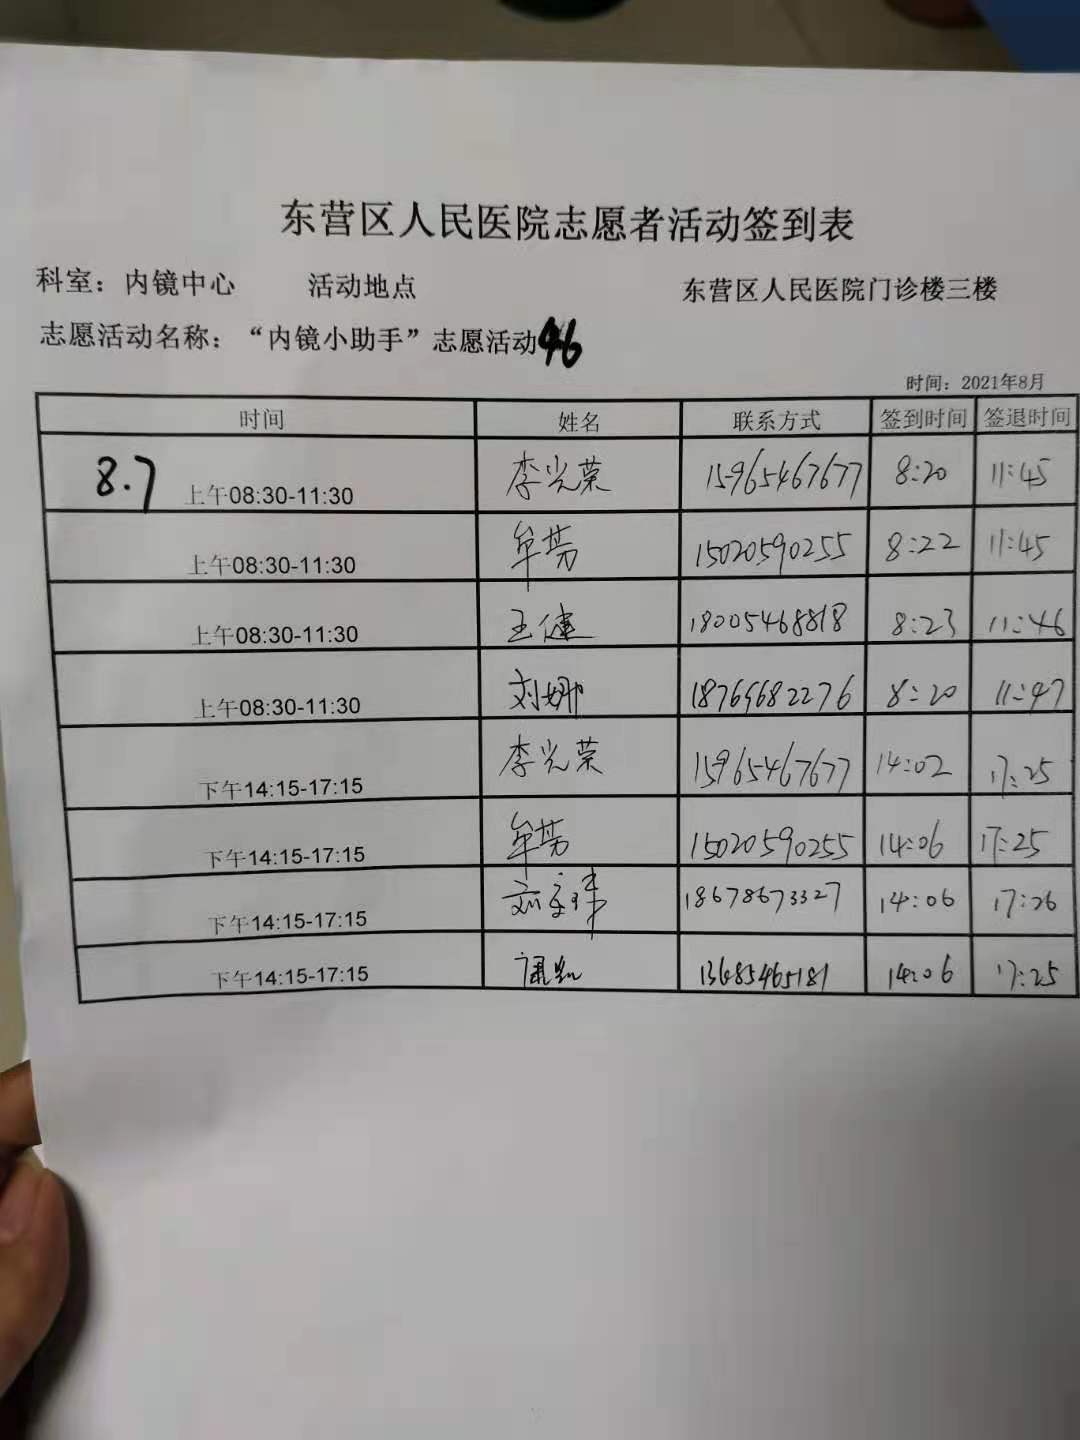 东营区人民医院志愿者活动签到表
科室：内镜中心 活动地点 东营区人民医院门诊楼三楼
志愿活动名称：“内镜小助手”志愿活动46
时间：2021年8月
时间 姓名 联系方式 签到时间 签退时间
8.7 上午08:30-11:30 李光荣 15965467677 8:20 11:45
上午08:30-11:30 牟芳 15020590255 8:22 11:45
上午08:30-11:30 王健 18005468818 8:23 11:46
上午08:30-11:30 刘娜 18769682276 8:20 11:47
下午14:15-17:15 李光荣 15965467677 14:02 17:25
下午14:15-17:15 牟芳 15020590255 14:06 17:25
下午14:15-17:15 18678673327 14:06 17:26
下午14:15-17:15 13685465181 14:06 17:25